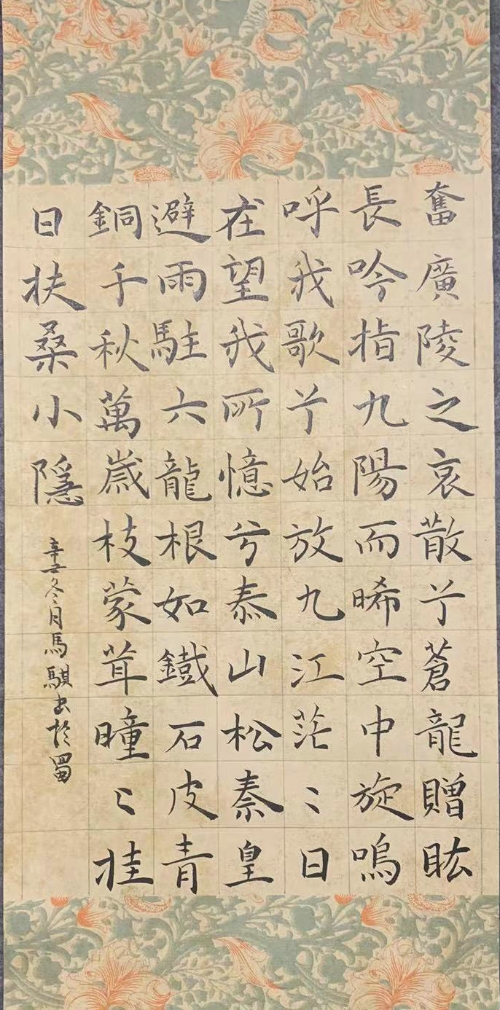 奮廣陵之哀散兮蒼龍贈眩
長吟指九陽而晞空中旋嗚
呼我歌兮始放九江茫〻日
在望我所憶兮泰山松秦皇
避雨駐六龍根如鐵石皮青
銅千秋萬歲枝蒙茸曈〻挂
日扶桑小隱
辛丑冬月馬騏書於蜀